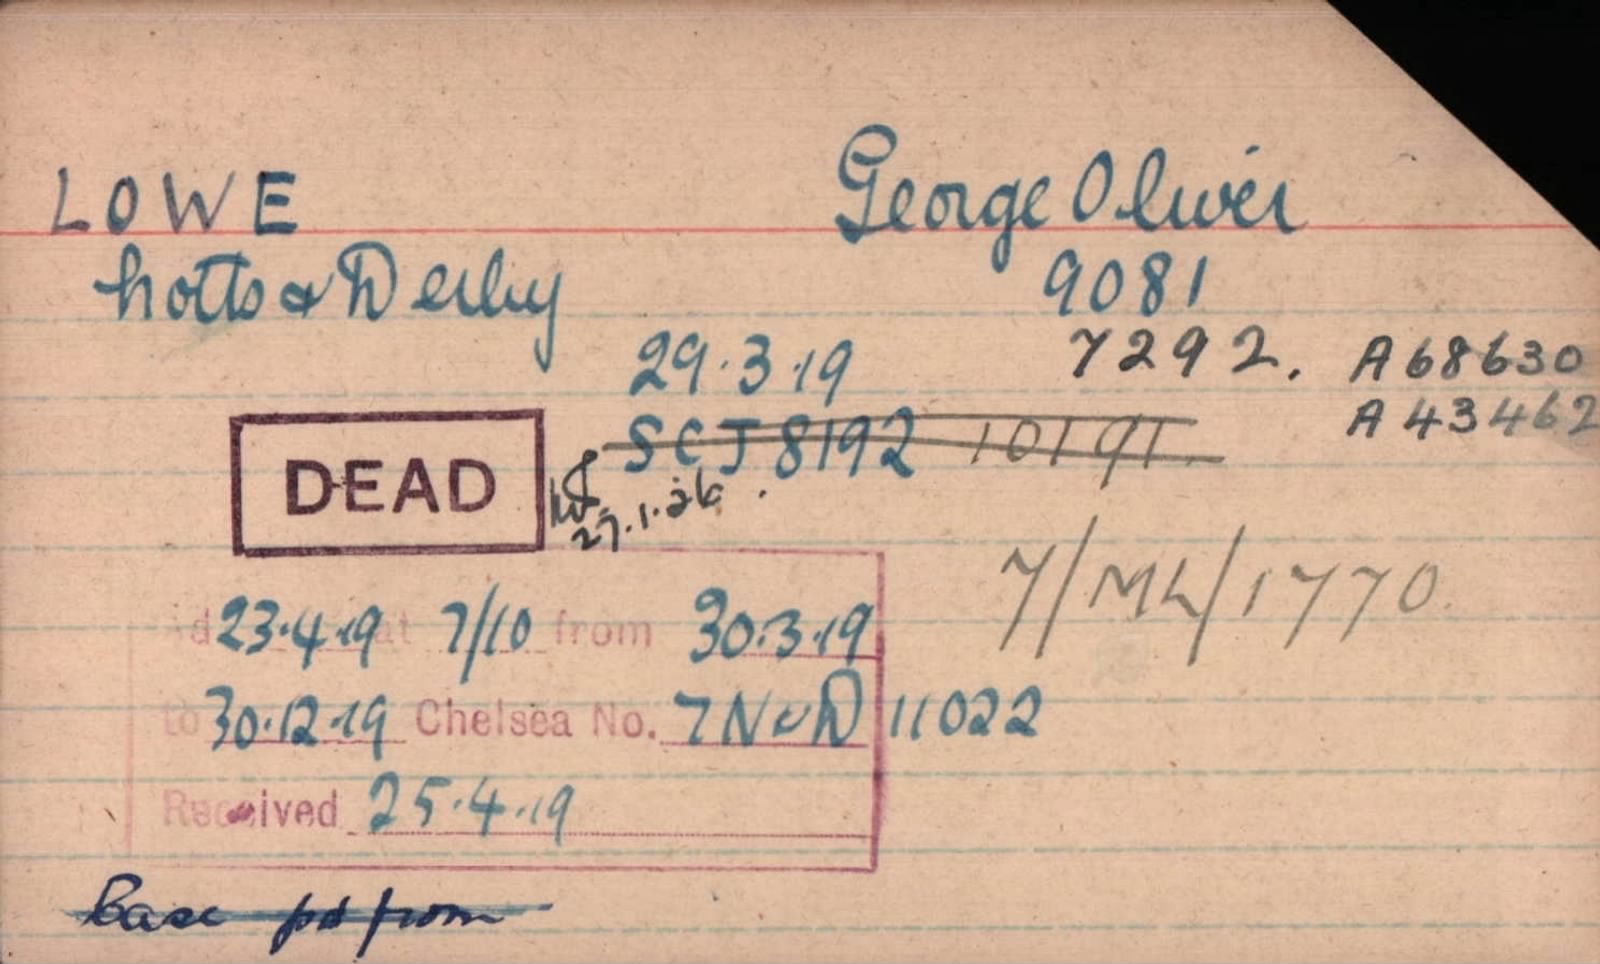 LOWE George Oliver
Notts & Derby 9081
29.3.19 7292. A68630
A43462
SCJ 8192 10191
DEAD
27.1.26.
7/ML/1770.
d 23.4.19 at 7/10 from 30.3.19
to 30.12.19 Chelsea No. 7N&D 11022
Received 25.4.19
Case pd from